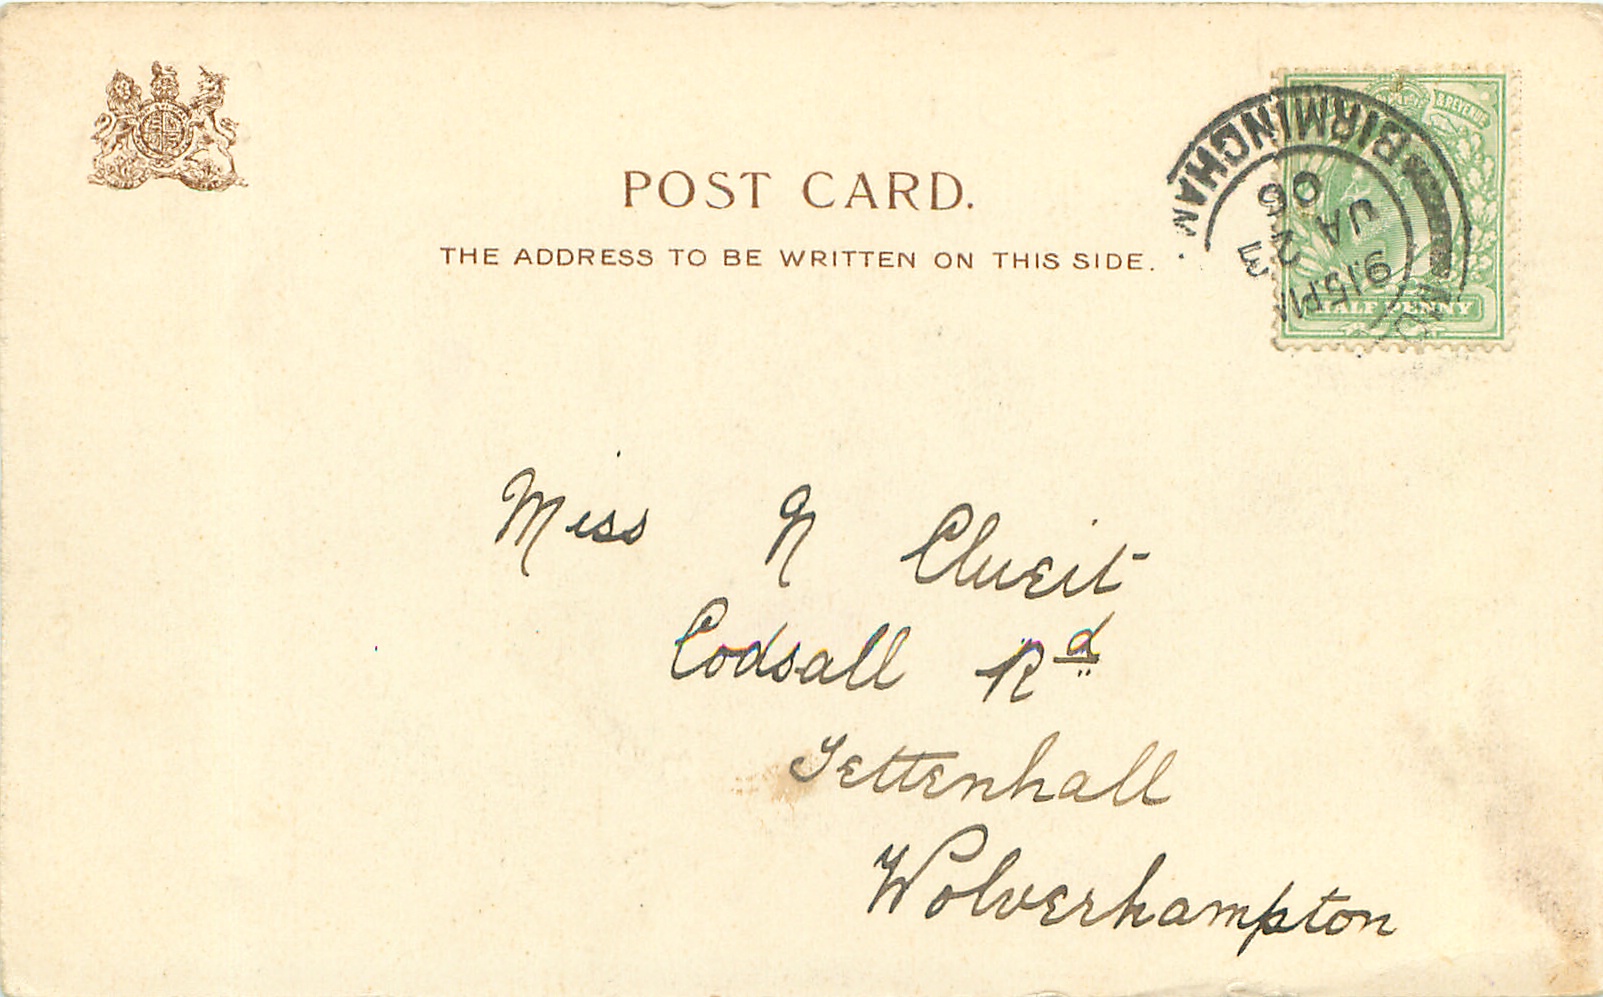 POST CARD.
THE ADDRESS TO BE WRITTEN ON THIS SIDE.
& REVENUE
HALF PENNY
BIRMINGHAM
9.15PM
JA 2
06
Miss N Clueit
Codsall Rd
Tettenhall
Wolverhampton